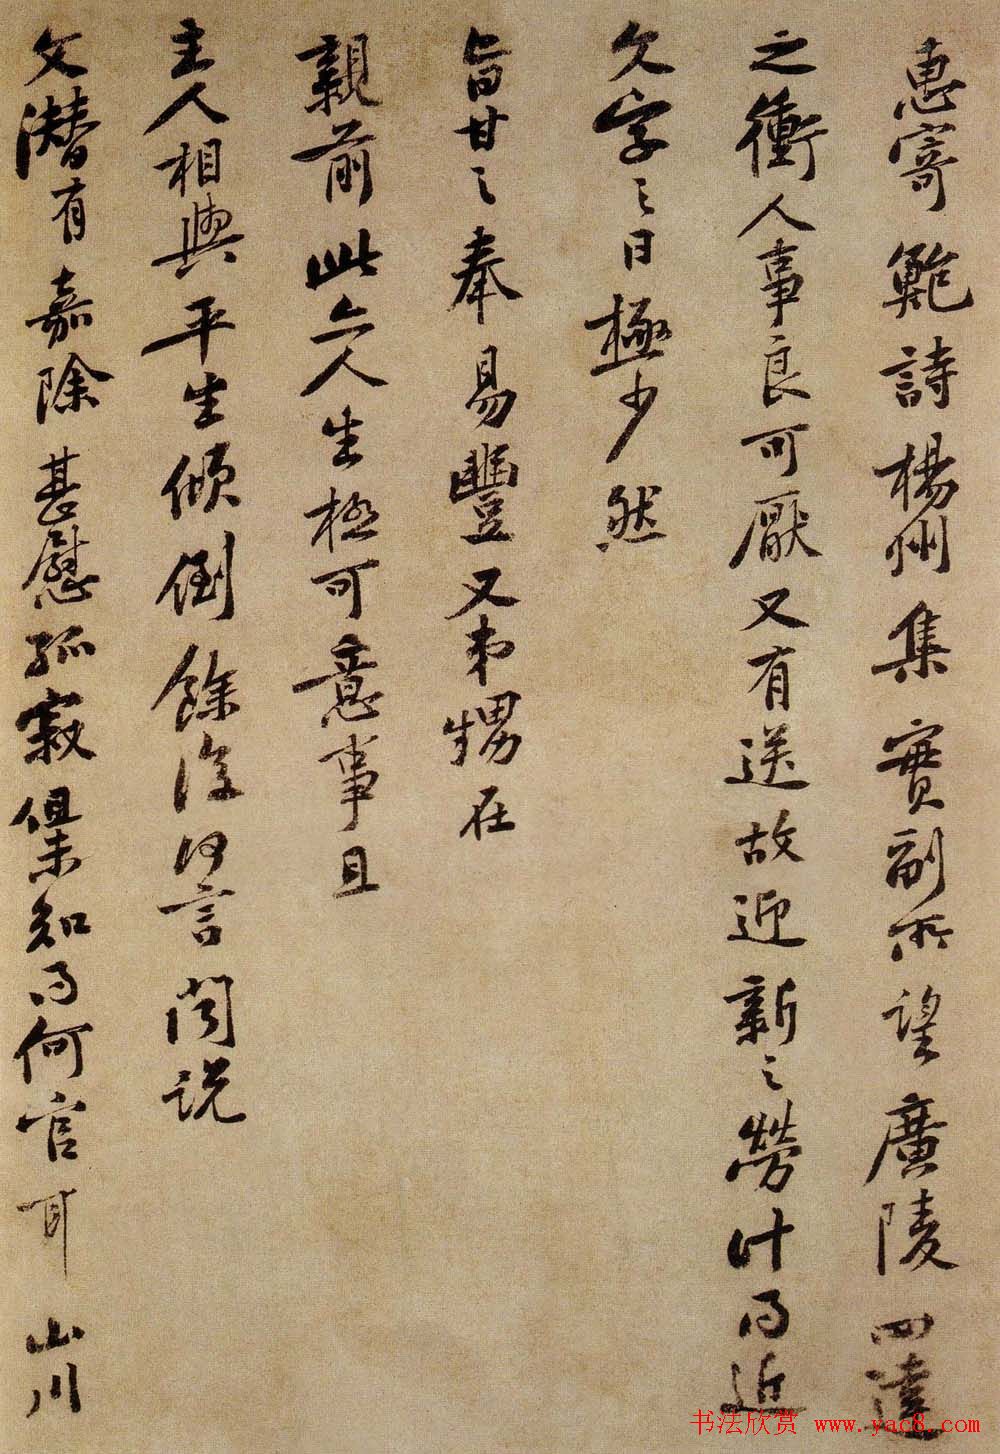 惠寄鲍詩楊州集實副所望廣陵四達
之衝人事良可厭又有送故迎新之勞計得近
文字之日極少然
旨甘之奉易豐又弟甥在
親前此亦人生極可意事且
主人相與平生傾倒餘復何言聞説
文潛有嘉除甚慰孤寂但未知得何官耳山川
书法欣赏 www.yac8.com